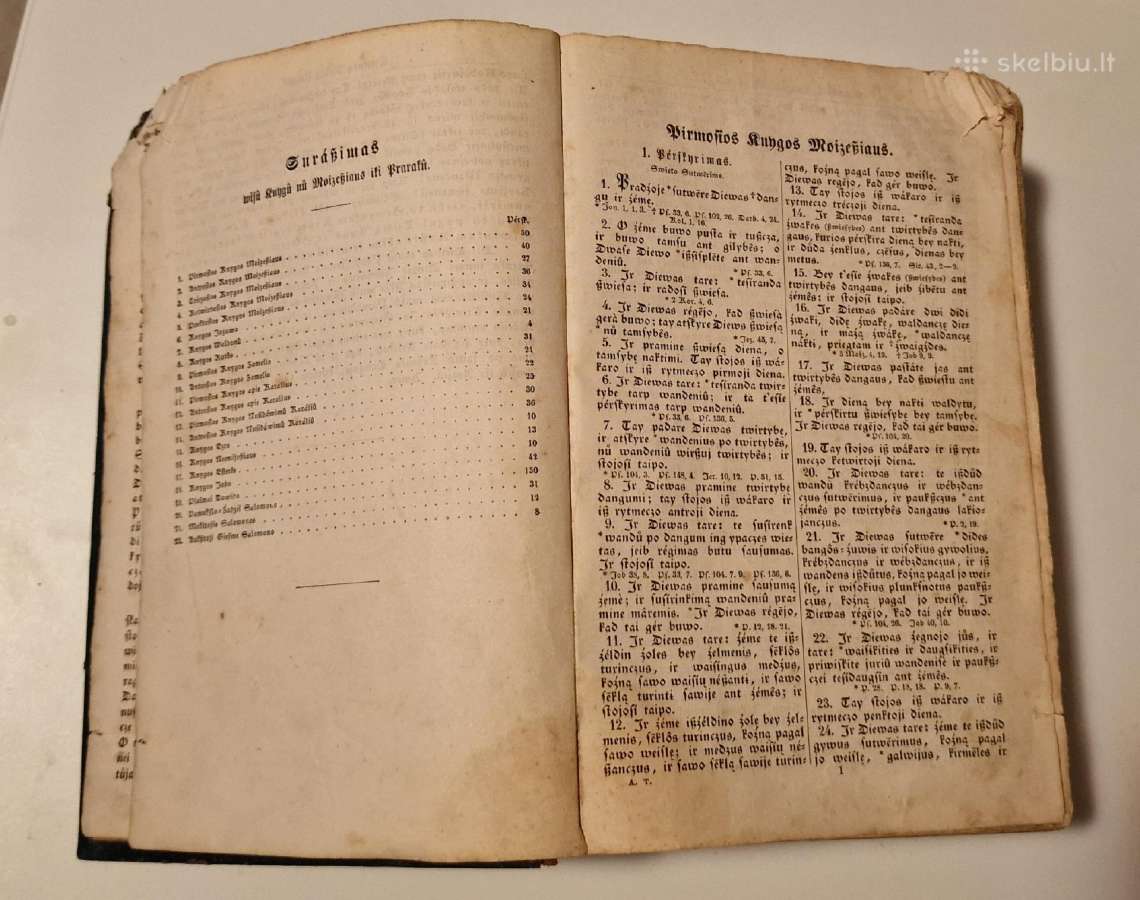 skelbiu.lt
Suráßimas
wisû Knygû nû Moizeßiaus iki Prarakû.
Pérsk.
1. Pirmosios Knygos Moizeßiaus 50
2. Antrosios Knygos Moizeßiaus 40
3. Trécziosios Knygos Moizeßiaus 27
4. Ketwirtosios Knygos Moizeßiaus 36
5. Penktosios Knygos Moizeßiaus 34
6. Knygos Jozuwo 24
7. Knygos Waldonû 21
8. Knygos Rutês 4
9. Pirmosios Knygos Zamelio 31
10. Antrosios Knygos Zamelio
11. Pirmosios Knygos apie Karalius 22
12. Antrosios Knygos apie Karalius 25
13. Pirmosios Knygos Nusidáwimû Karáliû
14. Antrosios Knygos Nusidáwimû Karáliû 36
15. Knygos Ezro 10
16. Knygos Neemijoßiaus 13
17. Knygos Esteros 10
18. Knygos Jobo 42
19. Psalmai Dowido 150
20. Salomono 31
21. Salomonas 12
22. Giesme Salomono 8
Pirmosios Knygos Moizeßiaus.
1. Pérskyrimas.
Swieto Sutwérims.
1. Pradzoje *sutwére Diewas †dan-
gu ir zéme.
*Jon. 1, 1. 3. † Ps. 33, 6. Ps. 102, 26. Darb. 4, 24.
Kol. 1, 16.
2. O zéme buwo pusta ir tußcza,
ir buwo tamsu ant gilybés; o
Dwase Diewo *ißsipléte ant wan-
deniû. *Ps. 33, 6.
3. Ir Diewas tare: *tesiranda
ßwiesa; ir radosi ßwiesa.
* 2 Kor. 4, 6.
4. Ir Diewas régéjo, kad ßwiesa
gerà buwo; tay atskyre Diews ßwiesą
*nû tamsybés. * Jez. 45, 7.
5. Ir pramine ßwiesą diena, o
tamsybę naktimi. Tay stojos iß wá-
karo ir iß rytmeczo pirmoji diena.
6. Ir Diewas tare: *tesiranda twir-
tybe tarp wandeniû; ir ta t'esie
pérskyrimas tarp wandeniû.
*Ps. 33, 6. Ps. 136, 5.
7. Tay padare Diewas twirtybę,
ir atskyre *wandenius po twirtybés,
nû wandeniû wirßuj twirtybés; ir
stojosi taipo.
*Ps. 104, 3. Ps. 148, 4. Jer. 10, 12. p. 51, 15.
8. Ir Diewas pramine twirtybę
dangumi; tay stojos iß wákaro ir
iß rytmeczo antroji diena.
9. Ir Diewas tare: te susirenk
*wandû po dangum ing ypaczes wie-
tas, jeib régimas butu sausumas.
Ir stojosi taipo.
*Job 38, 8. Ps. 33, 7. Ps. 104, 7. 9. Ps. 136, 6.
10. Ir Diewas pramine sausumą
zéme; ir susirinkimą wandeniû pra-
mine máremis. *Ir Diewas régéjo,
kad tai gér buwo. *p. 12, 18. 21.
11. Ir Diewas tare: zéme te iß-
zéldin zoles bey zelmenis, séklôs
turinczus, ir waisingus medzus,
kożną sawo waisiu néßantį, ir sawo
séklą turintį sawije ant zémés; ir
stojosi taipo.
12. Ir zéme ißzéldino zolę bey zel-
menis, séklôs turinczus, kożną pagal
sawo weislę; ir medzus waisiu né-
ßanczus, ir sawo séklą sawije turin-
A. T.
czus, kożną pagal sawo weislę. Ir
Diewas régéjo, kad gér buwo.
13. Tay stojos iß wákaro ir iß
rytmeczo tréczoji diena.
14. Ir Diewas tare: *tesiranda
żwakes (ßwiesybes) ant twirtybés dan-
gaus, kurios pérskira dieną bey naktį,
ir dûda zenklus, czésus, dienas bey
metus. *Ps. 136, 7. Sir. 43, 2—9.
15. Bey t'esie żwakes (ßwiesybes) ant
twirtybés dangaus, jeib zibétu ant
zémés; ir stojosi taipo.
16. Ir Diewas padare dwi didi
żwaki, didę żwakę, waldanczę die-
ną, ir mażą żwákę, *waldanczę
nákti, priegtam ir †żwaigzdes.
* 5 Moiz. 4, 19. † Job 9, 9.
17. Ir Diewas pastáte jas ant
twirtybés dangaus, kad ßwiestu ant
zémés;
18. Ir dieną bey nakti waldytu,
ir *pérskirtu ßwiesybę bey tamsybę.
Ir Diewas régéjo, kad tai gér buwo.
*Ps. 104, 20.
19. Tay stojos iß wákaro ir iß ryt-
meczo ketwirtoji diena.
20. Ir Diewas tare: te ißdûd
wandû krébzdanczus ir wébzdan-
czus sutwérimus, ir paukßczus *ant
zémés po twirtybés dangaus lakio-
janczus. *p. 2, 19.
21. Ir Diewas sutwére *dides
bangós-zuwis ir wisokius gywolius,
krébzdanczus ir wébzdanczus, ir iß
wandens ißdûtus, kożną pagal jo weis-
lę, ir wisokius plunksnotus paukß-
czus, kożną pagal jo weislę. Ir
Diewas régéjo, kad tai gér buwo.
*Ps. 104, 26. Job 40, 10.
22. Ir Diewas zegnojo jûs, ir
tare: *waisikities ir daugsikities, ir
priwiskite juriû wandenise ir paukß-
czei tesidaugsin ant zémés.
*p. 28. p. 18, 18. p. 9, 7.
23. Tay stojos iß wákaro ir iß
rytmeczo penktoji diena.
24. Ir Diewas tare: zéme te ißdûd
gywus sutwérimus, kożną pagal
jo weislę, *galwijus, kirméles ir
1